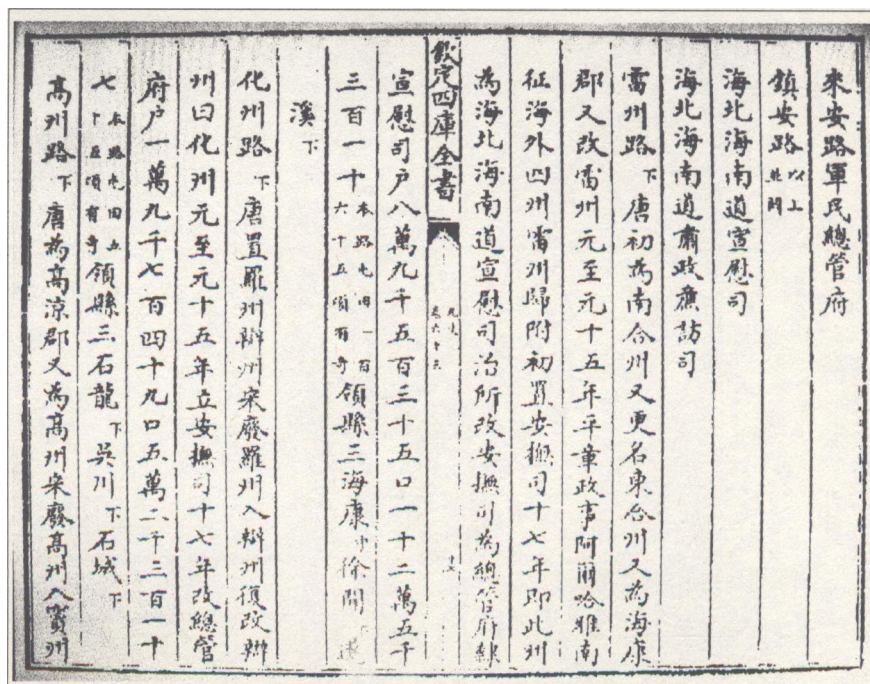 來安路軍民總管府
鎮安路以上並闕
海北海南道宣慰司
海北海南道肅政廉訪司
雷州路下唐初為南合州又更名東合州又為海康
郡又改雷州元至元十五年平章政事阿爾哈雅南
征海外四州雷州歸附初置安撫司十七年即此州
為海北海南道宣慰司治所改安撫司為總管府隸
欽定四庫全書
元史
卷六十三
宣慰司戶八萬九千五百三十五口一十二萬五千
三百一十本路屯田一百六十五頃有奇領縣三海康中徐聞下遂
溪下
化州路下唐置羅州辯州宋廢羅州入辯州復改辯
州曰化州元至元十五年立安撫司十七年改總管
府戶一萬九千七百四十九口五萬二千三百一十
七本路屯田五十五頃有奇領縣三石龍下吳川下石城下
高州路下唐為高涼郡又為高州宋廢高州入竇州